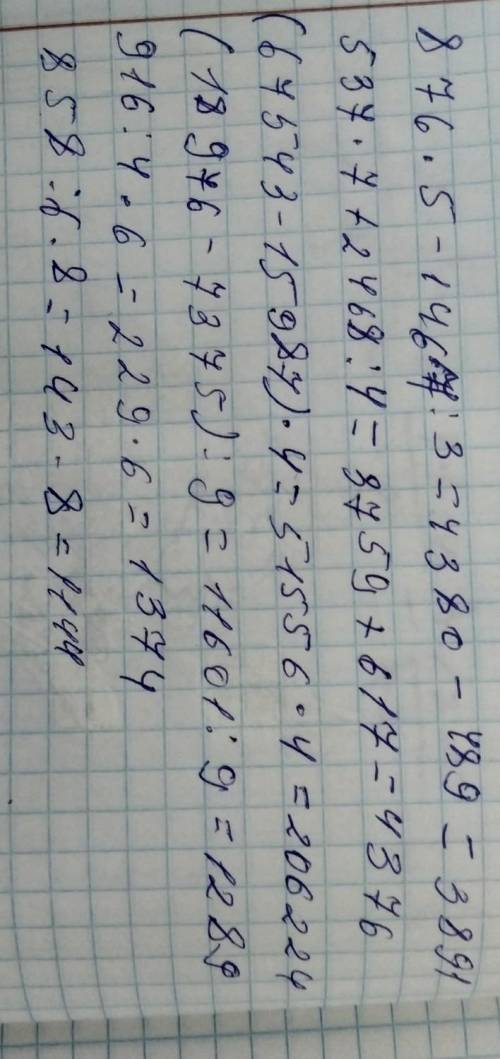 876·5-1467:3=4380-489=3891
537·7+2468:4=3759+617=4376
(67543-15987)·4=51556·4=206224
(18976-7375):9=11601:9=1289
916:4·6=229·6=1374
858:6·8=143·8=1144